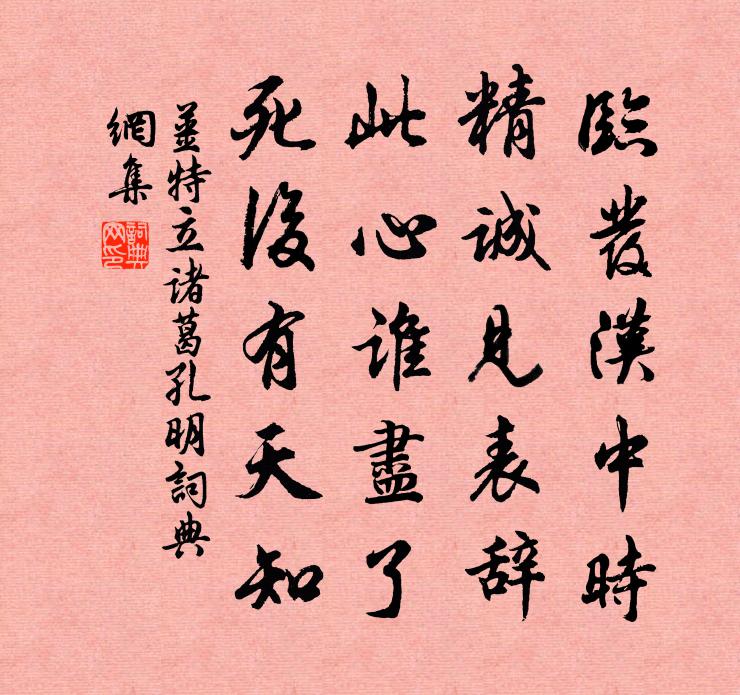 臨發漢中時
精誠見表辞
此心誰盡了
死後有天知
薑特立諸葛孔明詞典
網集
詞典網印